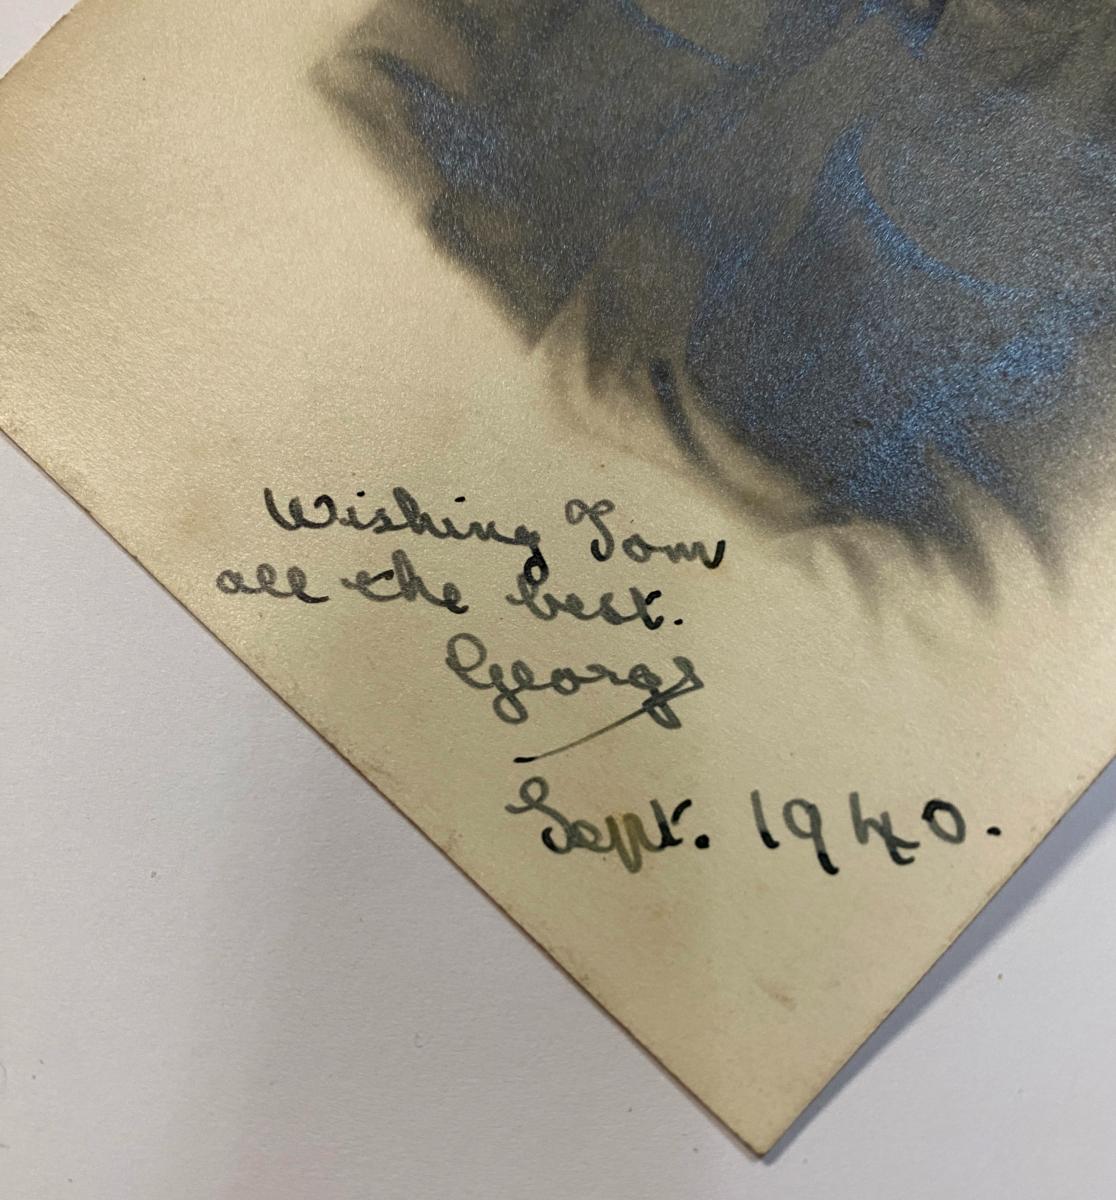 Wishing Tom
all the best.
George
Sept. 1940.